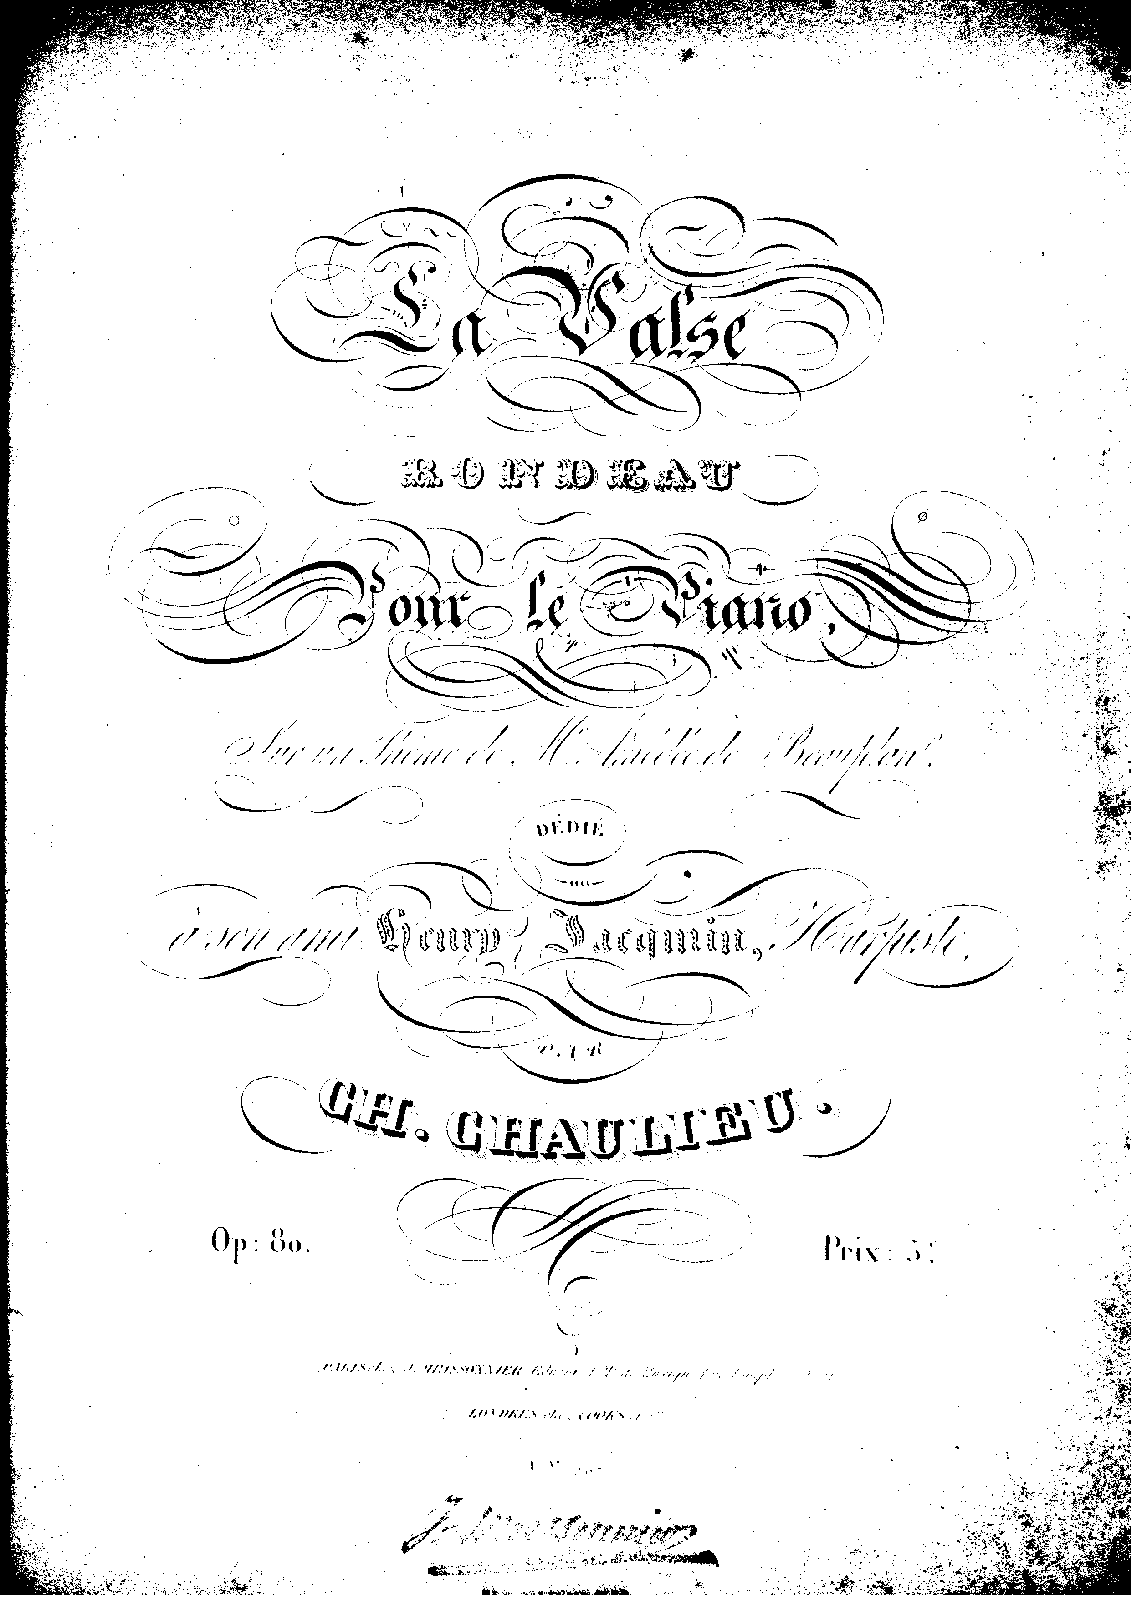 La Valse
RONDEAU
Pour le Piano,
Sur un Thême de Mr. Amédée de Beauplan.
DÉDIÉ
à son ami Henry Jacqmin, Harpiste.
PAR
CH. CHAULIEU.
Op: 80.
Prix: 5f
PARIS, J. MEISSONNIER
LONDRES, COCKS
J. Meissonnier